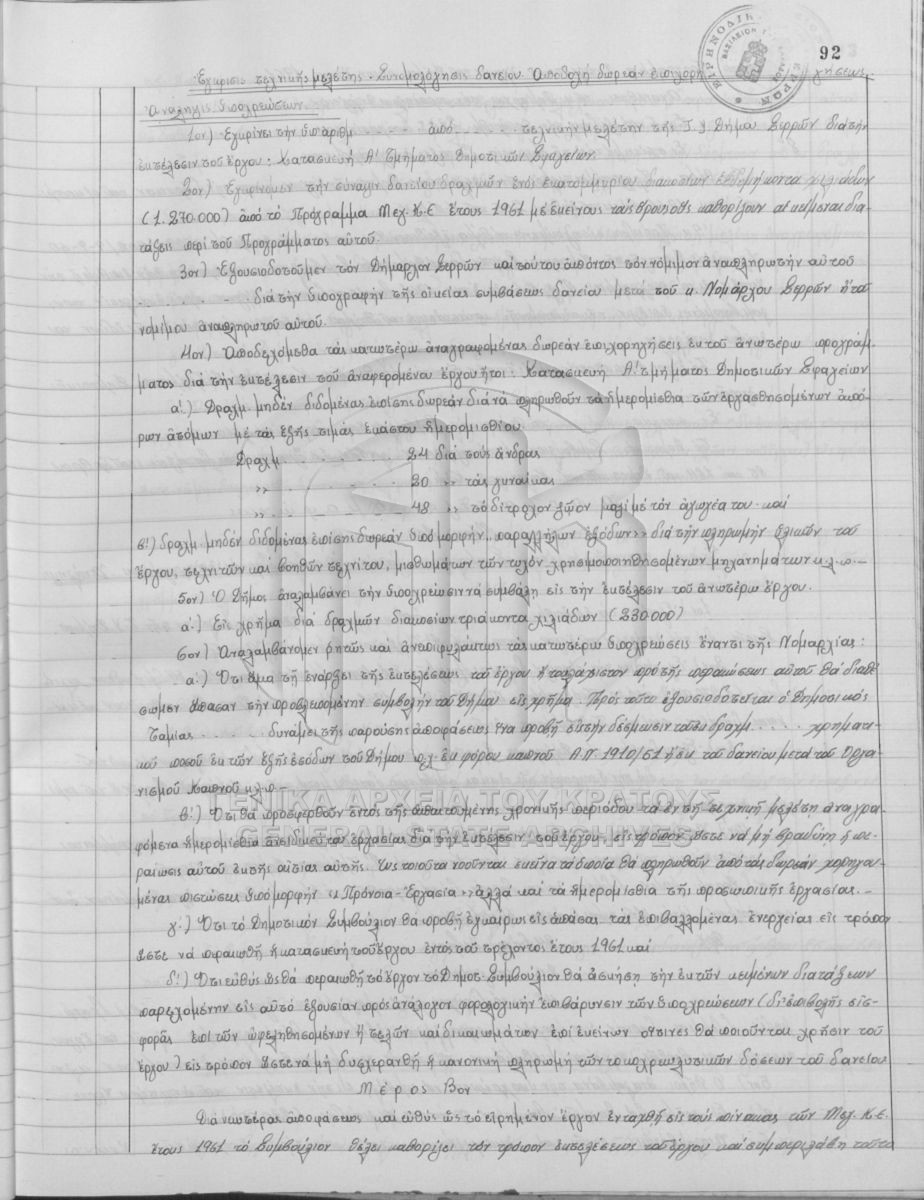 92
ΕΙΡΗΝΟΔΙΚ
Έγκρισις τεχνικής μελέτης. Συνομολόγησις δανείου. Αποδοχή δωρεάν επιχορηγήσεως.
Ανάληψις υποχρεώσεων.
1ον) Εγκρίνει την υπ' αριθμ. . . . . από . . . . . τεχνικήν μελέτην της Τ.Υ Δήμου Σερρών διά την
εκτέλεσιν του έργου: Κατασκευή Α' Τμήματος Δημοτικών Σφαγείων.
2ον) Εγκρίνομεν την σύναψιν δανείου δραχμών ενός εκατομμυρίου διακοσίων εβδομήκοντα χιλιάδων
(1.270.000) από το Πρόγραμμα Μεχ. Κ-Ε έτους 1961 με εκείνους τους όρους οίτινες καθορίζουν αι κείμεναι δια-
τάξεις περί του Προγράμματος αυτού.
3ον) Εξουσιοδοτούμεν τον Δήμαρχον Σερρών και τούτου απόντος τον νόμιμον αναπληρωτήν αυτού
. . . . . διά την υπογραφήν της οικείας συμβάσεως δανείου μετά του κ. Νομάρχου Σερρών ή του
νομίμου αναπληρωτού αυτού.
4ον) Αποδεχόμεθα τας κατωτέρω αναγραφομένας δωρεάν επιχορηγήσεις εκ του ανωτέρω προγράμ-
ματος διά την εκτέλεσιν του αναφερομένου έργου ήτοι: Κατασκευή Α' τμήματος Δημοτικών Σφαγείων
α'.) Δραχμ. μηδέν διδομένας επίσης δωρεάν διά να πληρωθούν τα ημερομίσθια των εργασθησομένων απόρων
ρων ατόμων με τας εξής τιμάς εκάστου ημερομισθίου
Δραχμ. . . . . . . . 24 διά τους άνδρας
,, . . . . . . . 20 ,, τας γυναίκας
,, . . . . . . . 48 ,, το δίτροχον ζώον μαζί με τον αγωγέα του. και
β'.) δραχμ. μηδέν διδομένας επίσης δωρεάν υπό μορφήν ,,παραλλήλων εξόδων,, διά την πληρωμήν υλικών του
έργου, τεχνιτών και βοηθών τεχνίτου, μισθωμάτων των τυχόν χρησιμοποιηθησομένων μηχανημάτων κ.λ.π.-
5ον) Ο Δήμος αναλαμβάνει την υποχρέωσιν να συμβάλη εις την εκτέλεσιν του ανωτέρω έργου.
α'.) Εις χρήμα διά δραχμών διακοσίων τριάκοντα χιλιάδων (230.000)
6ον) Αναλαμβάνομεν ρητώς και ανεπιφυλάκτως τας κατωτέρω υποχρεώσεις έναντι της Νομαρχίας:
α'.) Ότι άμα τη ενάρξει της εκτελέσεως του έργου ή τουλάχιστον προ της περατώσεως αυτού θα διαθέ-
σωμεν άπασαν την προβλεπομένην συμβολήν του Δήμου εις χρήμα. Προς τούτο εξουσιοδοτείται ο Δημοτικός
Ταμίας . . . . . δυνάμει της παρούσης αποφάσεως ίνα προβή εις την δέσμευσιν του εκ δραχμ. . . . . χρηματι-
κού ποσού εκ των εξής εσόδων του Δήμου π.χ. εκ φόρου καπνού Α.Ν. 1910/51 ή εκ του δανείου μετά του Οργα-
νισμού Καπνού κ.λ.π.-
β'.) Ότι θα προσφερθούν εντός της απαιτουμένης χρονικής περιόδου τα εν τη τεχνική μελέτη αναγρα-
φόμενα ημερομίσθια ανειδικεύτου εργασίας διά την εκτέλεσιν του έργου, εις τρόπον ώστε να μη βραδύνη η πε-
ραίωσις αυτού εκ της αιτίας αυτής. Ως τοιαύτα νοούνται εκείνα τα οποία θα πληρωθούν από τας δωρεάν χορηγου-
μένας πιστώσεις υπό μορφήν ,,Πρόνοια-Εργασία,, αλλά και τα ημερομίσθια της προσωπικής εργασίας.-
γ'.) Ότι το Δημοτικόν Συμβούλιον θα προβή εγκαίρως εις απάσας τας επιβαλλομένας ενεργείας εις τρόπον
ώστε να περατωθή η κατασκευή του έργου εντός του τρέχοντος έτους 1961 και
δ'.) Ότι ευθύς ως θα περατωθή το έργον το Δημοτ. Συμβούλιον θα ασκήση την εκ των κειμένων διατάξεων
παρεχομένην εις αυτό εξουσίαν προς ανάλογον φορολογικήν επιβάρυνσιν των υποχρεώσεων (δι' επιβολής εισ-
φοράς επί των ωφεληθησομένων ή τελών και δικαιωμάτων επί εκείνων οίτινες θα ποιούνται χρήσιν του
έργου) εις τρόπον ώστε να μη δυσχερανθή η κανονική πληρωμή των τοκοχρεωλυτικών δόσεων του δανείου
Μέρος Βον
Διά νεωτέρας αποφάσεως και ευθύς ως το ειρημένον έργον ενταχθή εις τους πίνακας των Μεχ. Κ.Ε.
έτους 1961 το Συμβούλιον θέλει καθορίσει τον τρόπον εκτελέσεως του έργου και συμπεριλάβη τούτο
ΓΕΝΙΚΑ ΑΡΧΕΙΑ ΤΟΥ ΚΡΑΤΟΥΣ
GENERAL STATE ARCHIVES